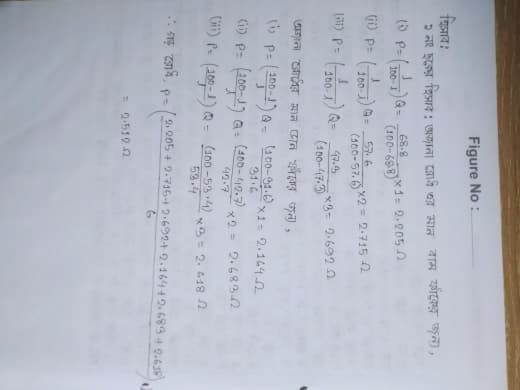 Figure No :
হিসাব :
১ নং ছকের হিসাব : অজানা রোধ এর মান বাম ফাঁকের জন্য,
(i) P = (l/100-l) Q = 68.8/(100-68.8) × 1 = 2.205 Ω
(ii) P = (l/100-l) Q = 57.6/(100-57.6) × 2 = 2.715 Ω
(iii) P = (l/100-l) Q = 47.3/(100-47.3) × 3 = 2.692 Ω
অজানা রোধের মান ডান ফাঁকের জন্য,
(i) P = (100-l/l) Q = (100-31.6)/31.6 × 1 = 2.164 Ω
(ii) P = (100-l/l) Q = (100-42.7)/42.7 × 2 = 2.683 Ω
(iii) P = (100-l/l) Q = (100-53.4)/53.4 × 3 = 2.618 Ω
∴ গড় রোধ, P = (2.205 + 2.715 + 2.692 + 2.164 + 2.683 + 2.618 / 6)
= 2.512 Ω